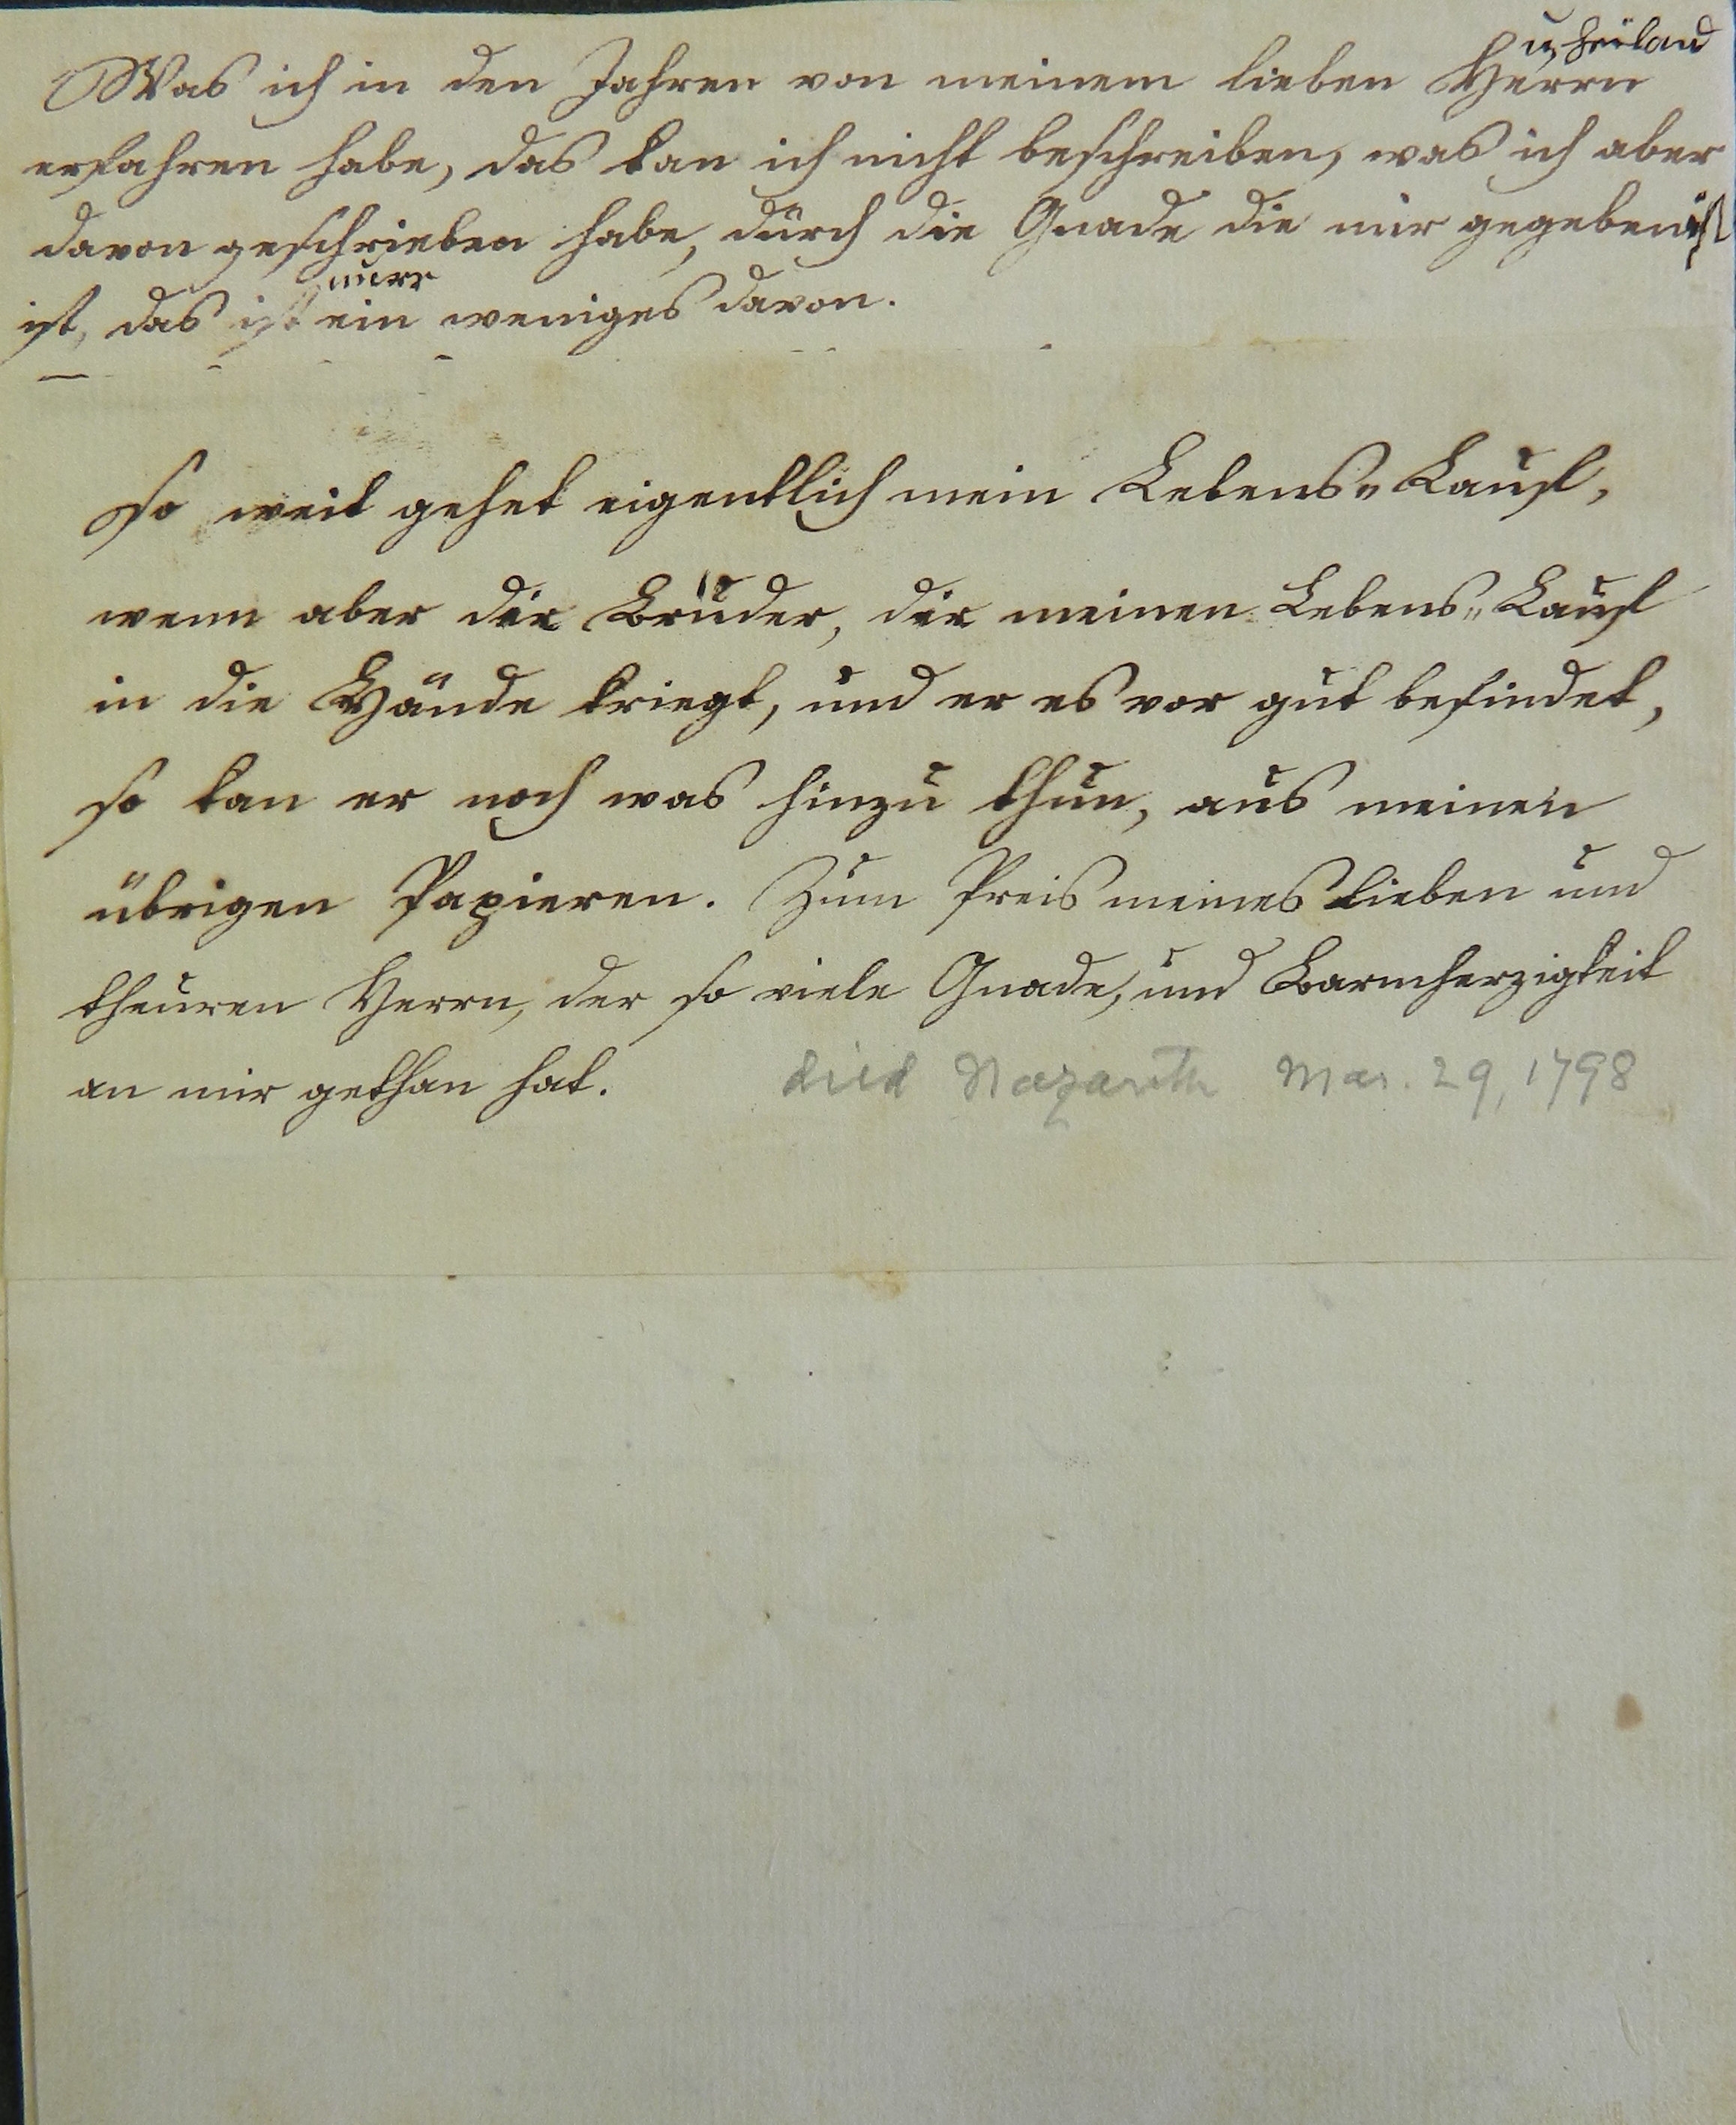 u, Heiland
Was ich in den Jahren von meinem lieben Herrn
erfahren habe, das kan ich nicht beschreiben, was ich aber
davon geschrieben habe, durch die Gnade die mir gegeben ist
nurr
ist, das ist ein weniges davon.
So weit gehet eigentlich mein Lebens„Lauf,
wenn aber der Bruder, der meinen Lebens„Lauf
in die Hände kriegt, und er es vor gut befindet,
so kan er noch was hinzu thun, aus meinen
übrigen Papieren. Zum Preis meines lieben und
theuren Herrn, der so viele Gnade, und Barmherzigkeit
an mir gethan hat. died Nazareth Mar. 29, 1798